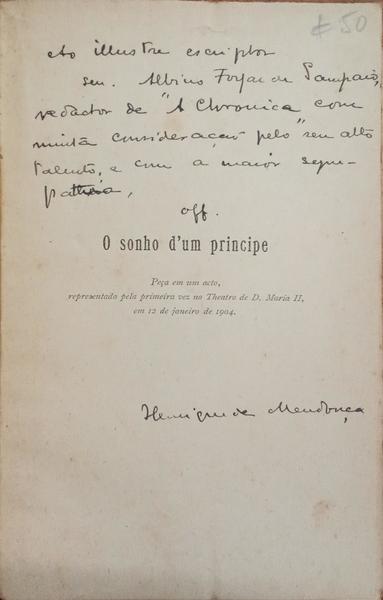 €50
Ao illustre escriptor
snr. Albino Forjaz de Sampaio,
redactor de "A Chronica" com
muita consideração pelo seu alto
talento, e com a maior sym-
pathia,
off.
O sonho d'um principe
Peça em um acto,
representado pela primeira vez no Theatro de D. Maria II,
em 12 de janeiro de 1904.
Henrique de Mendonça